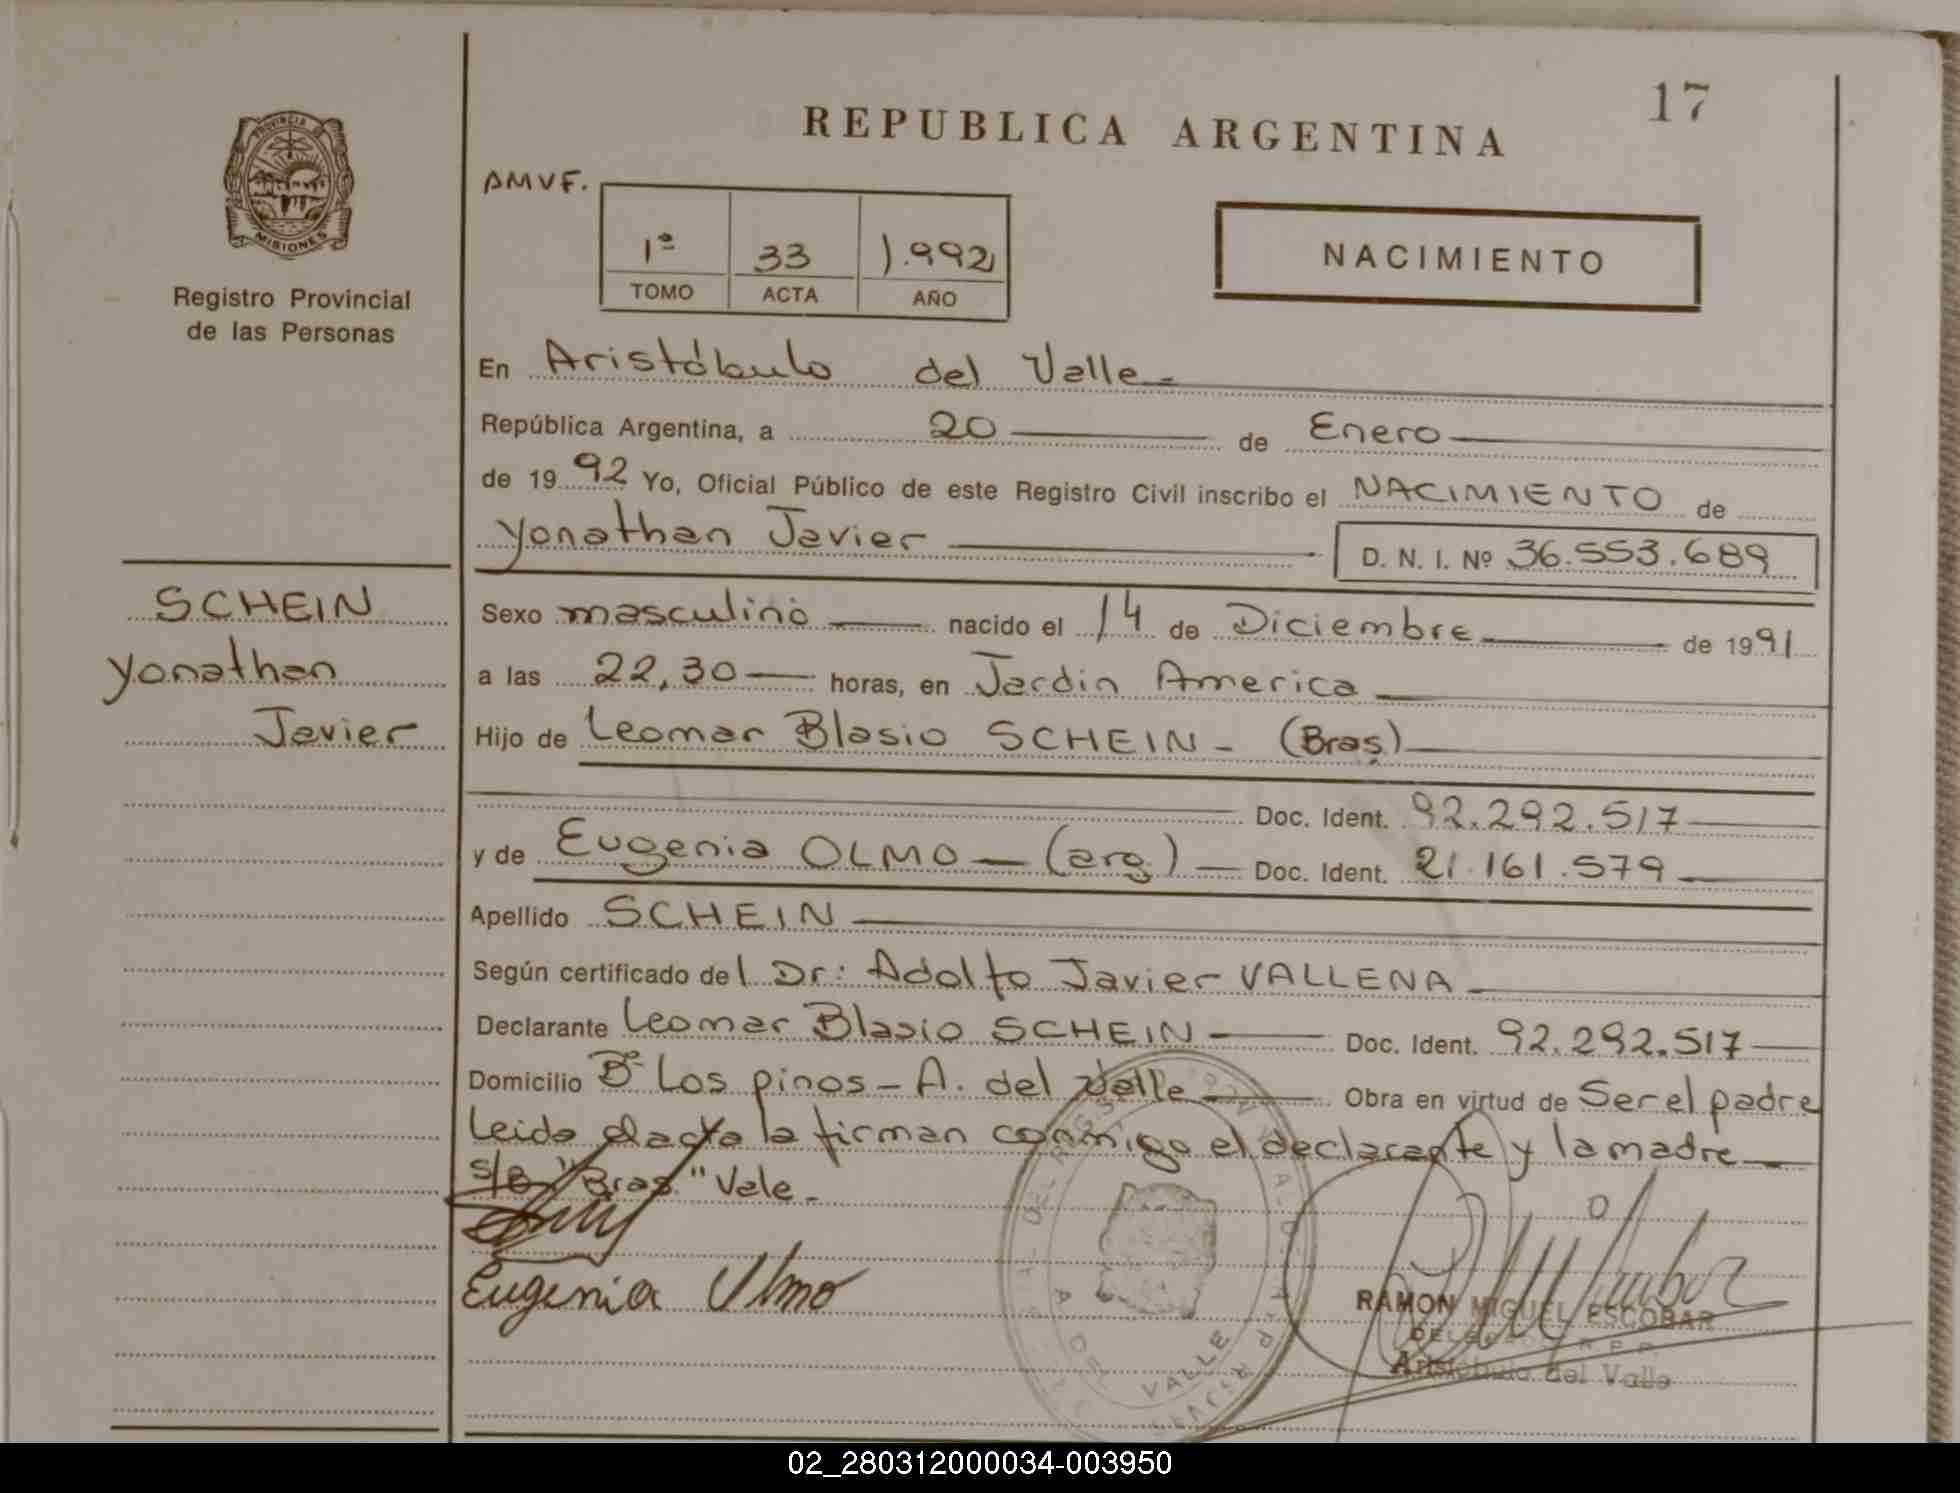 17
REPUBLICA ARGENTINA
PROVINCIA DE
MISIONES
Registro Provincial
de las Personas
AMVF.
1º 33 1.992
TOMO ACTA AÑO
NACIMIENTO
En Aristóbulo del Valle-
República Argentina, a 20 de Enero
de 1992 Yo, Oficial Público de este Registro Civil inscribo el NACIMIENTO de
Yonathan Javier D. N. I. Nº 36.553.689
SCHEIN
Yonathan
Javier
Sexo masculino nacido el 14 de Diciembre de 1991
a las 22,30 horas, en Jardin America
Hijo de Leomar Blasio SCHEIN - (Bras.)
Doc. Ident. 92.292.517
y de Eugenia OLMO - (arg.) - Doc. Ident. 21.161.579
Apellido SCHEIN
Según certificado del Dr: Adolfo Javier VALLENA
Declarante Leomar Blasio SCHEIN Doc. Ident. 92.292.517
Domicilio Bº Los pinos - A. del Valle Obra en virtud de Ser el padre
Leida el acta la firman conmigo el declarante y la madre
S/B "Bras." Vale.
Eugenia Olmo
RAMON MIGUEL ESCOBAR
Aristóbulo del Valle
VALLE
02_280312000034-003950